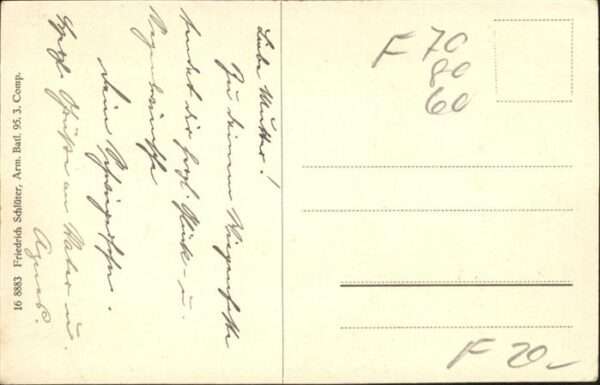 Liebe Mutter!
Zu deinem Wiegenfeste
sendet dir herzl. Glück- u.
Segenswünsche
dein
Herzl. Grüße an Vater u.
Agnes.
16 8883 Friedrich Schlüter, Arm. Batl. 95. 3. Comp.
F 70
80
60
F 20.-